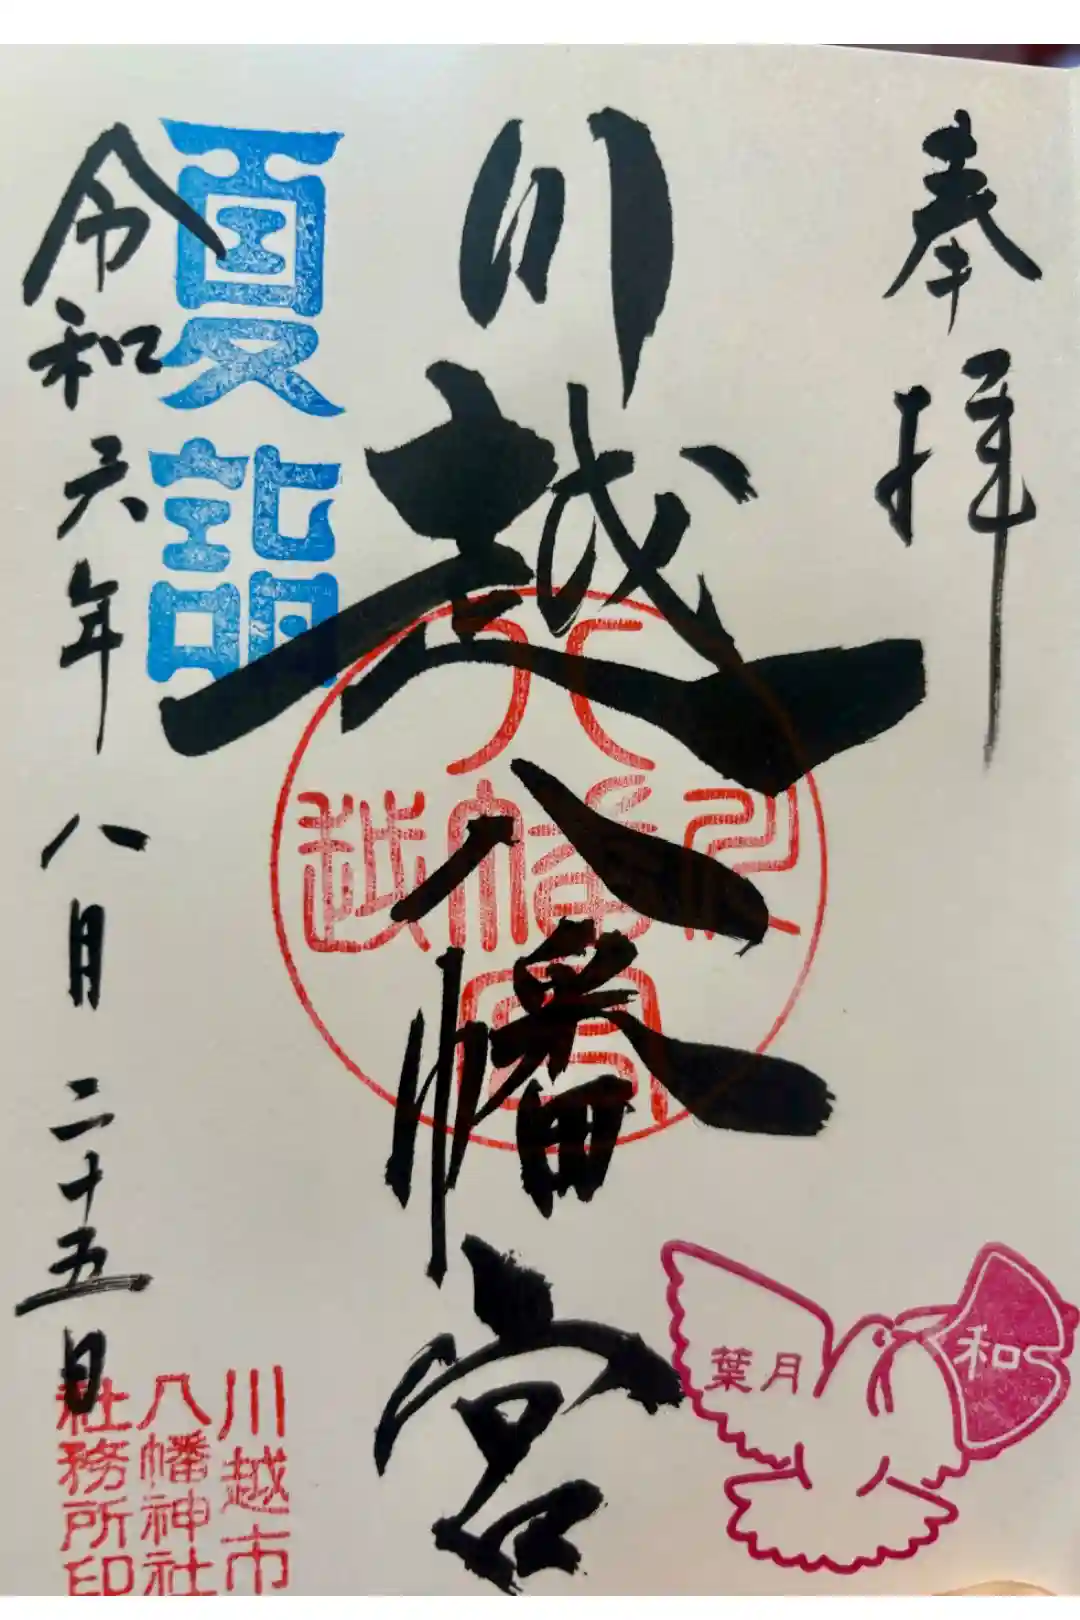 奉拝
川越八幡宮
夏詣
令和六年八月二十五日
八幡宮
川越
月葉
和
川越市
八幡神社
社務所印